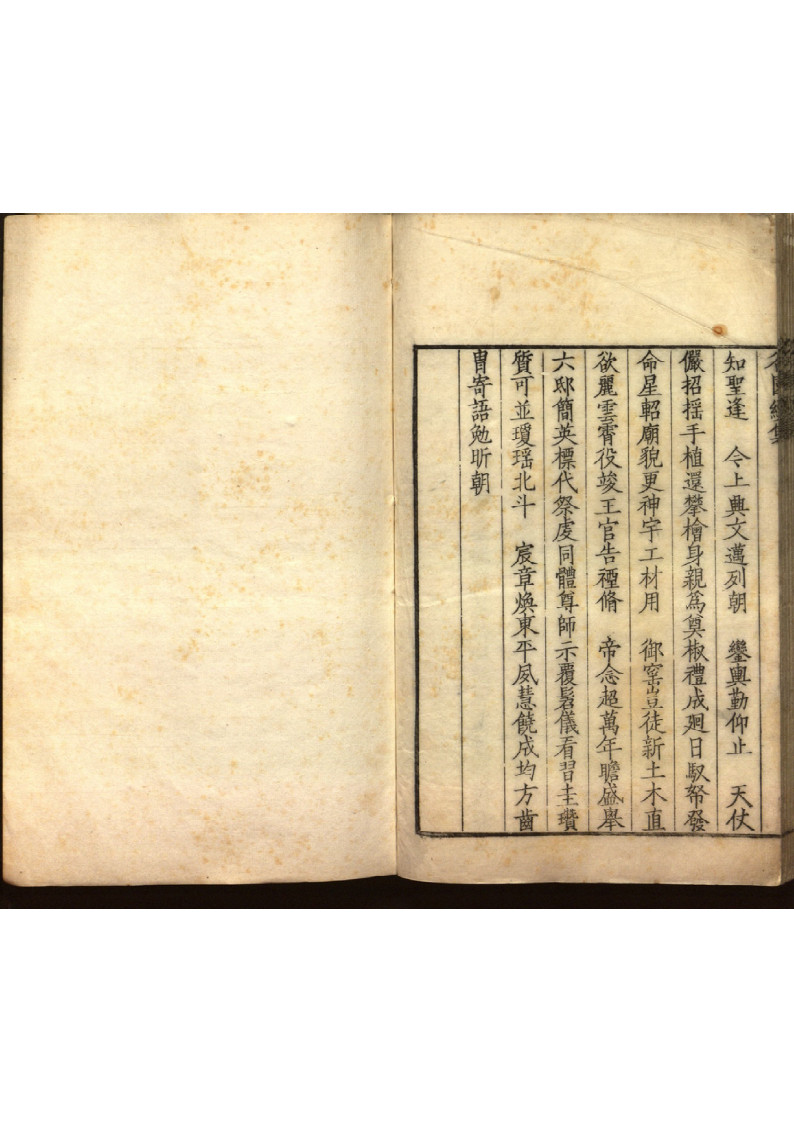 知聖逢　今上典文邁列朝　鑾輿勤仰止　天仗
儼招揺手植還攀檜身親爲奠椒禮成廻日馭帑發
命星軺廟貌更神宇工材用　御窑豈徒新土木直
欲麗雲霄役竣王官告禋脩　帝念超萬年瞻盛舉
六邸簡英標代祭虔同體尊師示覆髫儀看習圭瓚
質可並瓊瑶北斗　宸章煥東平夙慧饒成均方齒
胄寄語勉昕朝